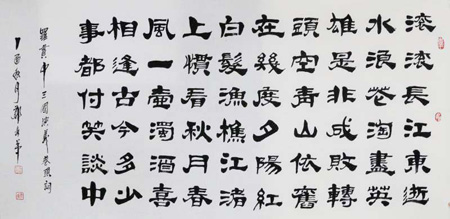 滾滾長江東逝
水浪花淘盡英
雄是非成敗轉
頭空青山依舊
在幾度夕陽紅
白髮漁樵江渚
上慣看秋月春
風一壺濁酒喜
相逢古今多少
事都付笑談中
羅貫中三國演義
丁酉秋月